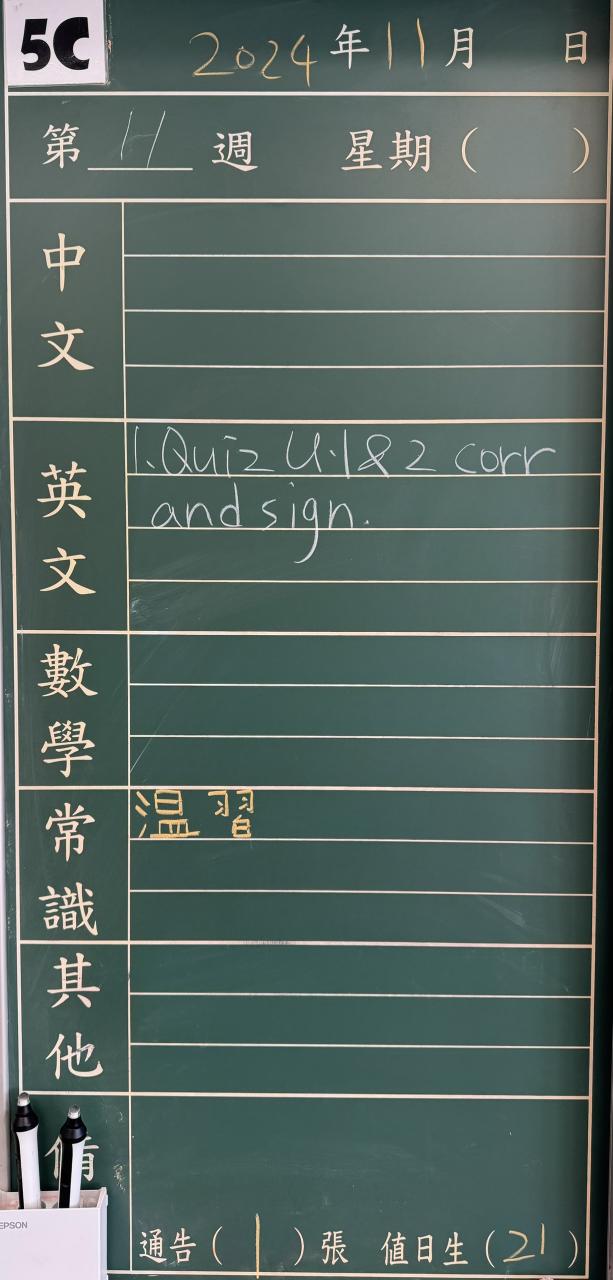 5C
2024年11月 日
第 11 週 星期( )
中文
英文
1.Quiz U.1&2 corr
and sign.
數學
常識
溫習
其他
EPSON
通告(1)張 值日生(21)